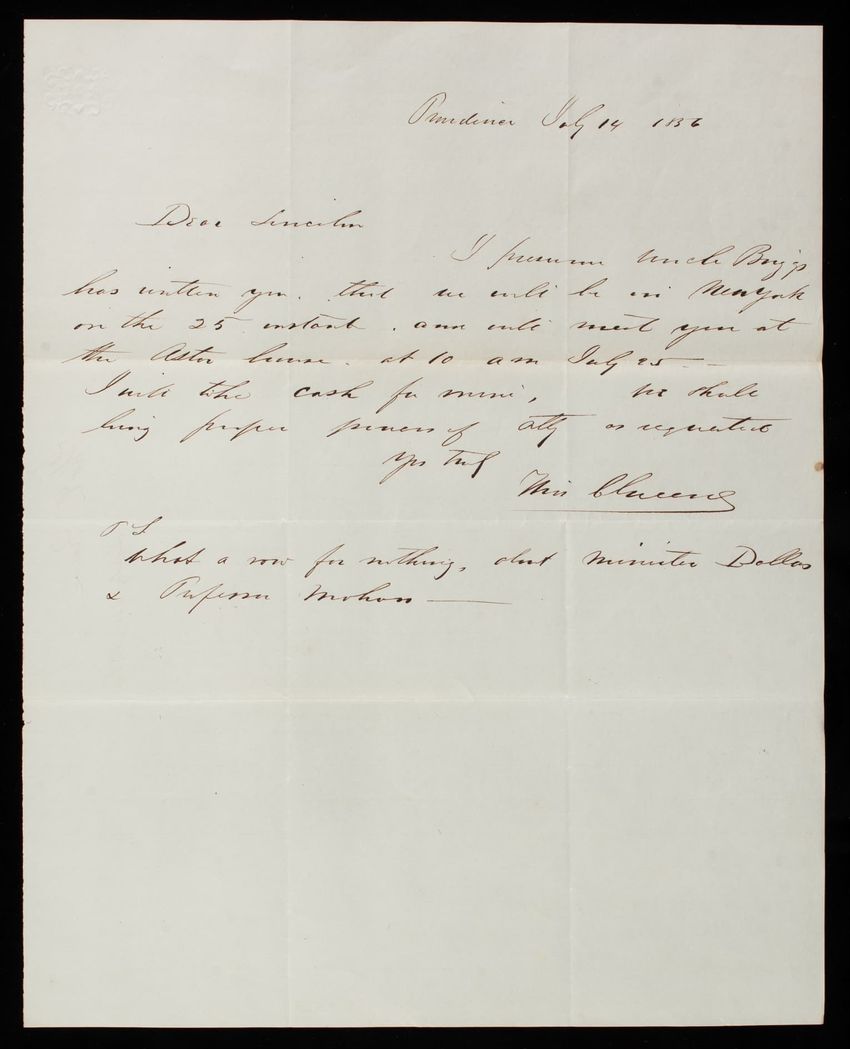 Providence July 14 1856
Dear Lincoln
I presume Uncle Briggs
has written you. that we will be in New York
on the 25 instant. and will meet you at
the Astor house. at 10 am July 25 —
I will take cash for mine, we shall
bring proper powers of atty as requested
Yrs truly
Wm C
P S
What a row for nothing, abut minister Dallas
& Professor Mahan —